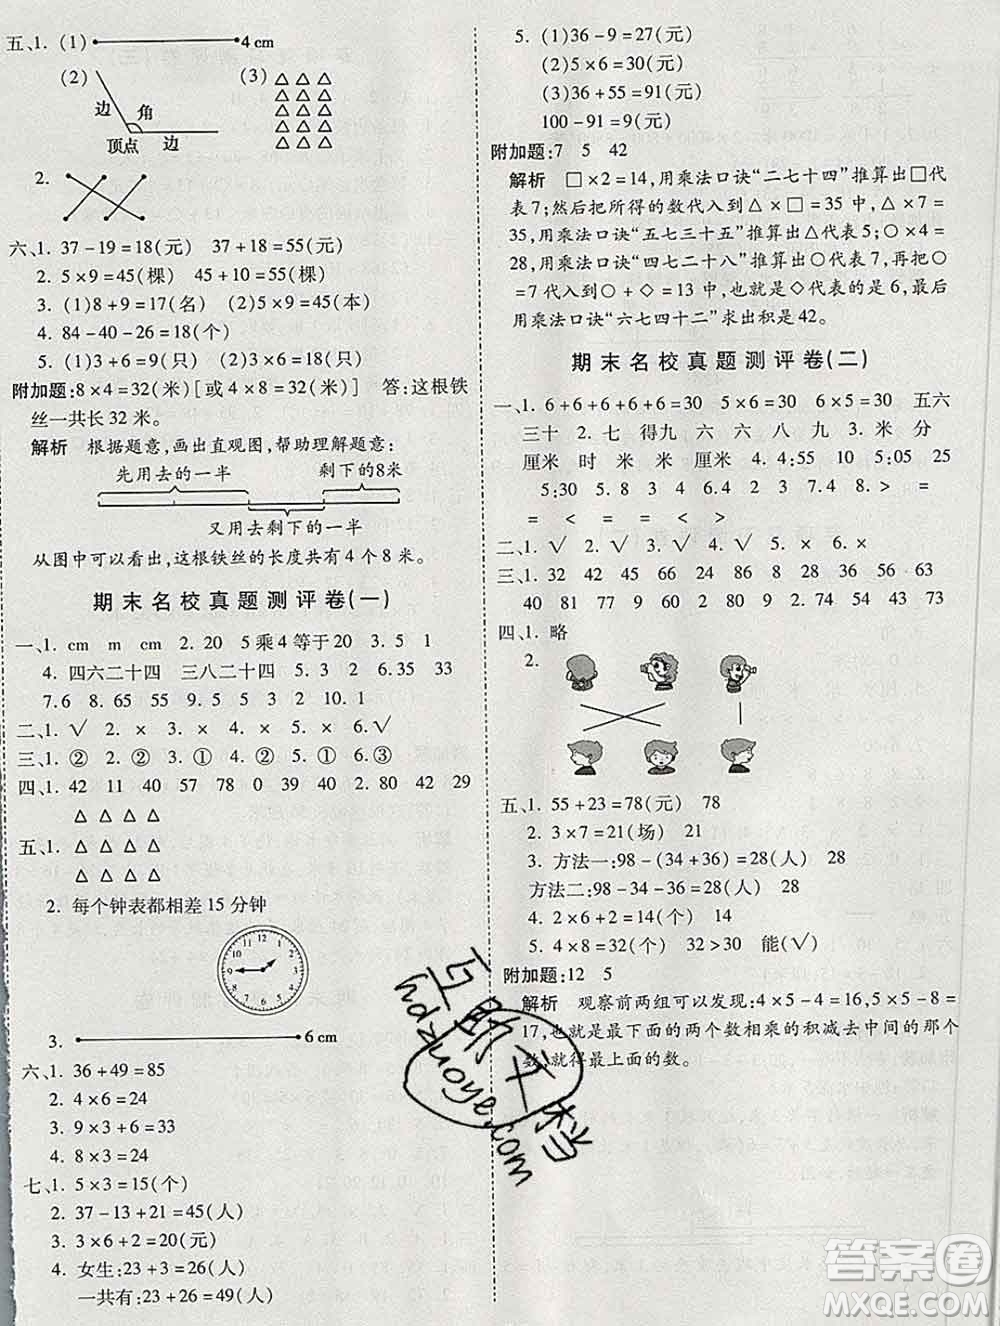 五、1. (1) 4 cm
(2) (3)
边 角
顶点 边
2.
六、1. 37-19=18(元) 37+18=55(元)
2. 5×9=45(棵) 45+10=55(棵)
3. (1)8+9=17(名) (2)5×9=45(本)
4. 84-40-26=18(个)
5. (1)3+6=9(只) (2)3×6=18(只)
附加题:8×4=32(米)[或4×8=32(米)] 答:这根铁
丝一共长 32 米。
解析 根据题意,画出直观图,帮助理解题意:
先用去的一半 剩下的8米
又用去剩下的一半
从图中可以看出,这根铁丝的长度共有 4 个 8 米。
期末名校真题测评卷(一)
一、1. cm m cm 2. 20 5乘4等于20 3. 5 1
4. 四六二十四 三八二十四 5. 3 2 6. 45 33
7. 6 8. 65 55 9. 5 5 5 10. 1 3 5
二、1. √ 2. × 3. × 4. × 5. × 6. √
三、1. ② 2. ② 3. ① 4. ② 5. ① 6. ③
四、1. 42 11 40 57 78 0 39 0 2. 80 42 29
△ △ △ △
五、1. △ △ △ △
△ △ △ △
2. 每个钟表都相差 15 分钟
3. 6 cm
六、1. 36+49=85
2. 4×6=24
3. 9×3+6=33
4. 8×3=24
七、1. 5×3=15(个)
2. 37-13+21=45(人)
3. 3×6+2=20(元)
4. 女生:23+3=26(人)
一共有:23+26=49(人)
5. (1)36-9=27(元)
(2)5×6=30(元)
(3)36+55=91(元)
100-91=9(元)
附加题:7 5 42
解析 □×2=14,用乘法口诀“二七十四”推算出□代
表7;然后把所得的数代入到△×□=35 中,△×7=
35,用乘法口诀“五七三十五”推算出△代表5;○×4=
28,用乘法口诀“四七二十八”推算出○代表7,再把○
=7代入到○+◇=13 中,也就是◇代表的是6,最后
用乘法口诀“六七四十二”求出积是42。
期末名校真题测评卷(二)
一、1. 6+6+6+6+6=30 5×6=30 6×5=30 五六
三十 2. 七 得九 六 六 八 九 3. 米 分
厘米 时 米 米 厘米 4. 4:55 10 5:05 25
5:30 5. 8 2 6. 3 4 7. 2 4 8. > > =
= < = = < >
二、1. √ 2. × 3. √ 4. √ 5. × 6. ×
三、1. 12 16 21 30 36 7 28 59 64 23
40 81 32 30 20 2. 57 48 43 45 73
四、1. 略
2.
五、1. 55+23=78(元) 78
2. 3×7=21(场) 21
3. 方法一:98-(34+36)=28(人) 28
方法二:98-34-36=28(人) 28
4. 2×6+2=14(个) 14
5. 4×8=32(人) 32>30 能(√)
附加题:12 5
解析 观察前两组可以发现:4×5-4=16,5×5-8=
17,也就是最下面的两个数相乘的积减去中间的那个
数,就得最上面的数。
hdzuoye.com
答案圈
MXQE.COM